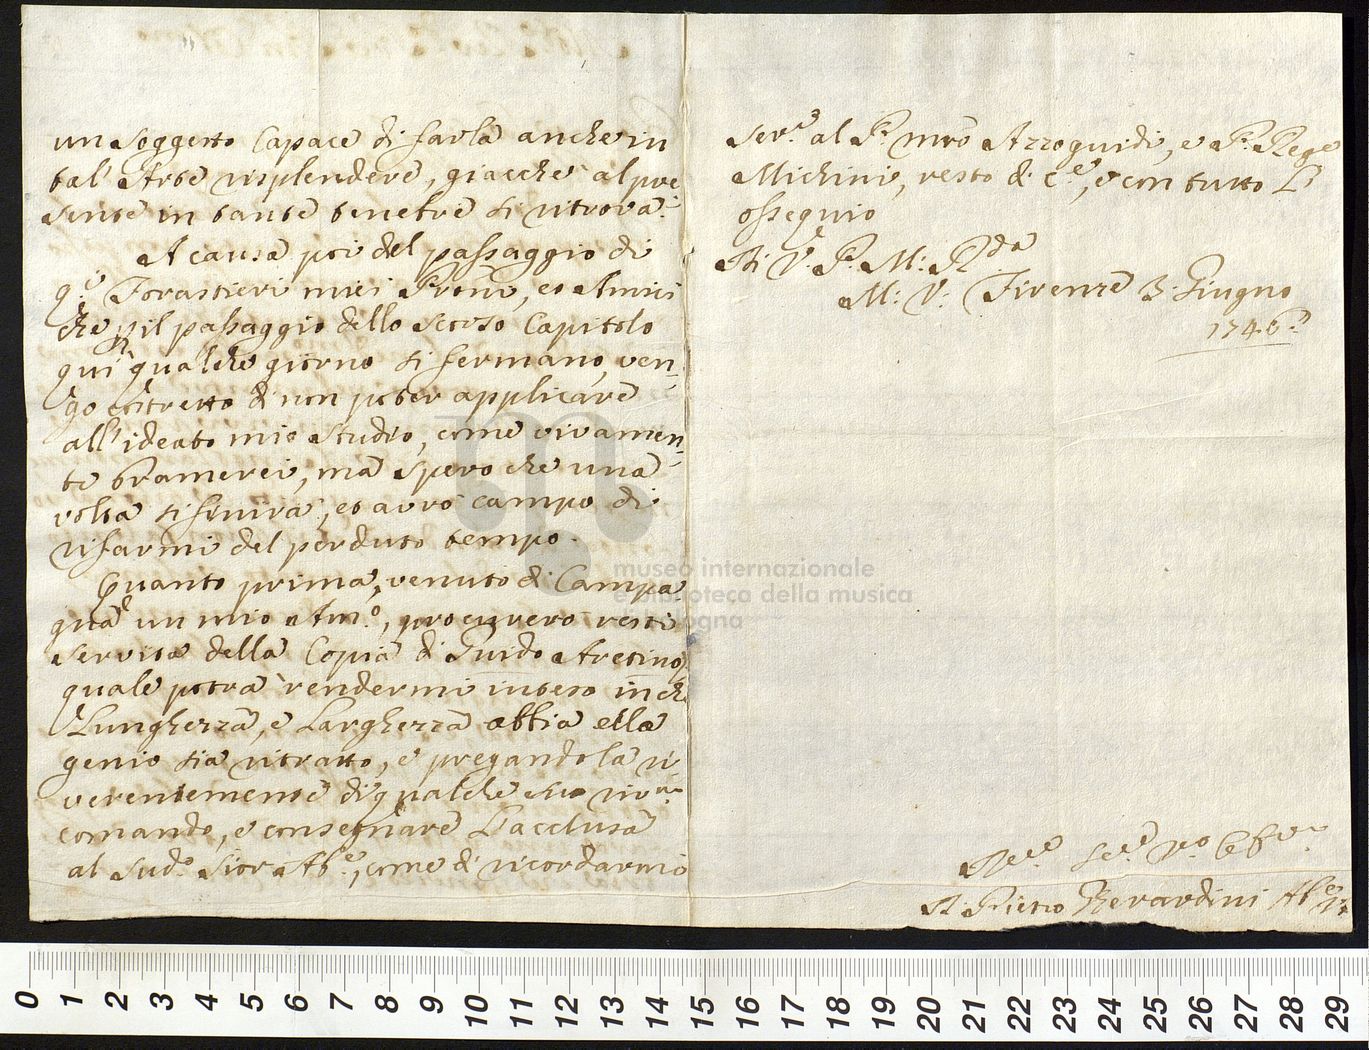 un soggetto capace di farla anche in
tal' Arte risplendere, giacchè al pre
sente in tante tenebre si ritrova.
A causa poi del passaggio di
q.i Forastieri miei Proni, ed Amici
che p il passaggio dello scorso Capitolo
qui qualche giorno si fermano, ven,,
go costretto di non poter applicare
all'ideato mio Studio, come vivamen,,
te bramerei, ma spero che una
volta si finirà, ed avrò campo di
rifarmi del perduto tempo.
Quanto prima, venuto di Campa,,
gna un mio Am.o, procurerò resti
servita della Copia di Guido Aretino,
quale potrà rendermi inteso in che
Lunghezza, e Larghezza abbia ella
genio sia ritratto, e pregandola ri,,
verentemente di qualche suo
comando, e consegnare l'acclusa
al Sud.o Sior Ab.e, come di ricordarmi
Ser.e al P. mro Azzoguidi, e P. Rege
Michini, resto &c.e, e con tutto l'
ossequio
Di V. P. M: R.da
M: V: Firenze 3. Giugno
1746.
A. Pietro Berardini Ab.e
museo internazionale
e biblioteca della musica
di bologna
0 1 2 3 4 5 6 7 8 9 10 11 12 13 14 15 16 17 18 19 20 21 22 23 24 25 26 27 28 29